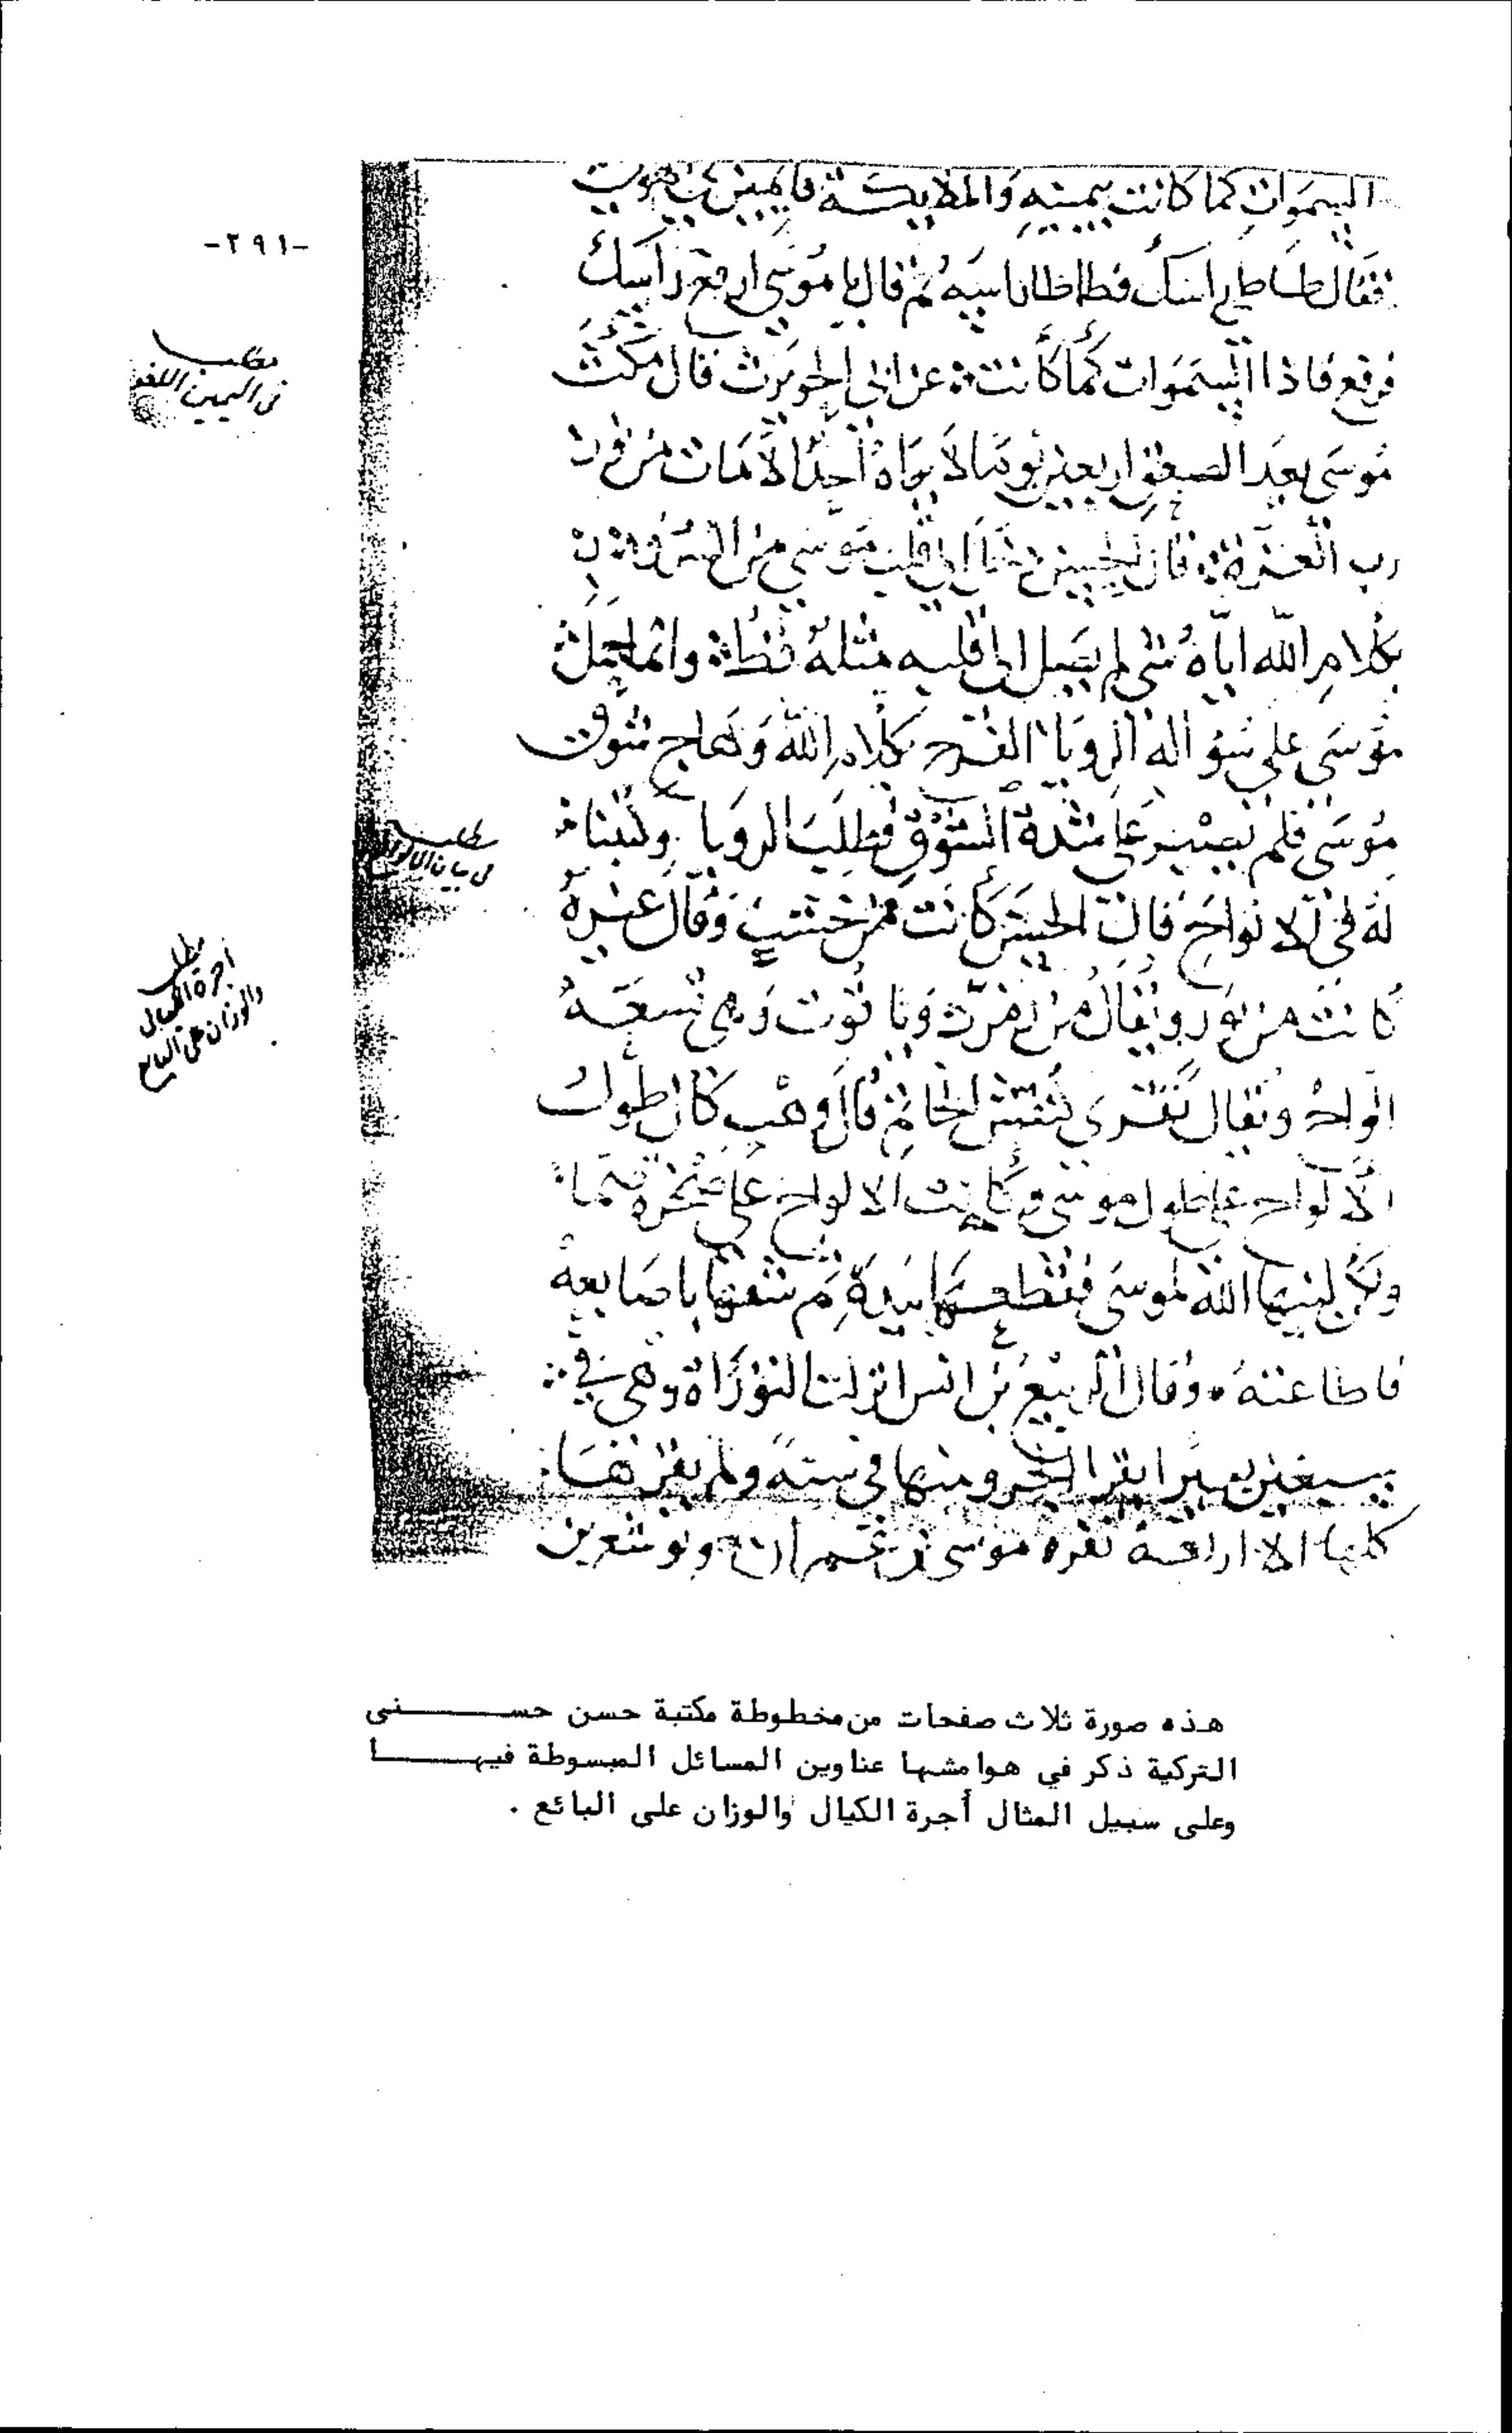 -٢٩١-
السموات كما كانت بيمينه والملائكة
فقال طاطي راسك فطاطا راسه ثم قال يا موسى ارفع راسك
فرفع فاذا السموات كما كانت عن ابي الحويرث قال مكث
موسى بعد الصعق اربعين يوما لا يراه احد الا مات من نور
رب العزة قال الحسن الى قلب موسى من السرور
بكلام الله اياه شي لم يصل الى قلبه مثله قط وانما حمل
موسى على سؤاله الرويا كلام الله وهاج شوق
موسى فلم يصبر على شدة الشوق فطلب الرويا وكتبنا
له في الالواح قال الحسن كانت من خشب وقال غيره
كانت من نور ويقال من زمرد وياقوت وهي تسعة
الواح ويقال تقرى كنقش الخاتم قال وهب كان طول
الالواح على طول موسى وكانت الالواح على صخرة صما
ولكن لينها الله لموسى فقطعها بيده ثم شقها باصابعه
فاطاعته وقال الربيع بن انس انزلت التوراة وهي
سبعين بعيرا يقرا الجزو منها في سنة ولم يقرها
كلها الا اربعة نفر موسى بن عمران ويوشع بن
مطلب
في اليمين اللغو
مطلب
في بيان الالواح
مطلب
اجرة الكيال
والوزان على البايع
هذه صورة ثلاث صفحات من مخطوطة مكتبة حسن حسنى
التركية ذكر في هوامشها عناوين المسائل المبسوطة فيها
وعلى سبيل المثال أجرة الكيال والوزان على البائع .